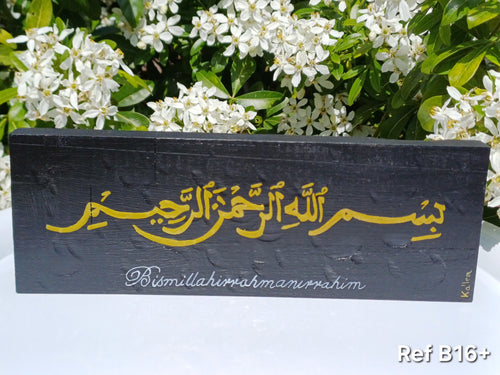 بِسْمِ اللَّهِ الرَّحْمٰنِ الرَّحِيمِ
Bismillahirrahmanirrahim
Ref B16+